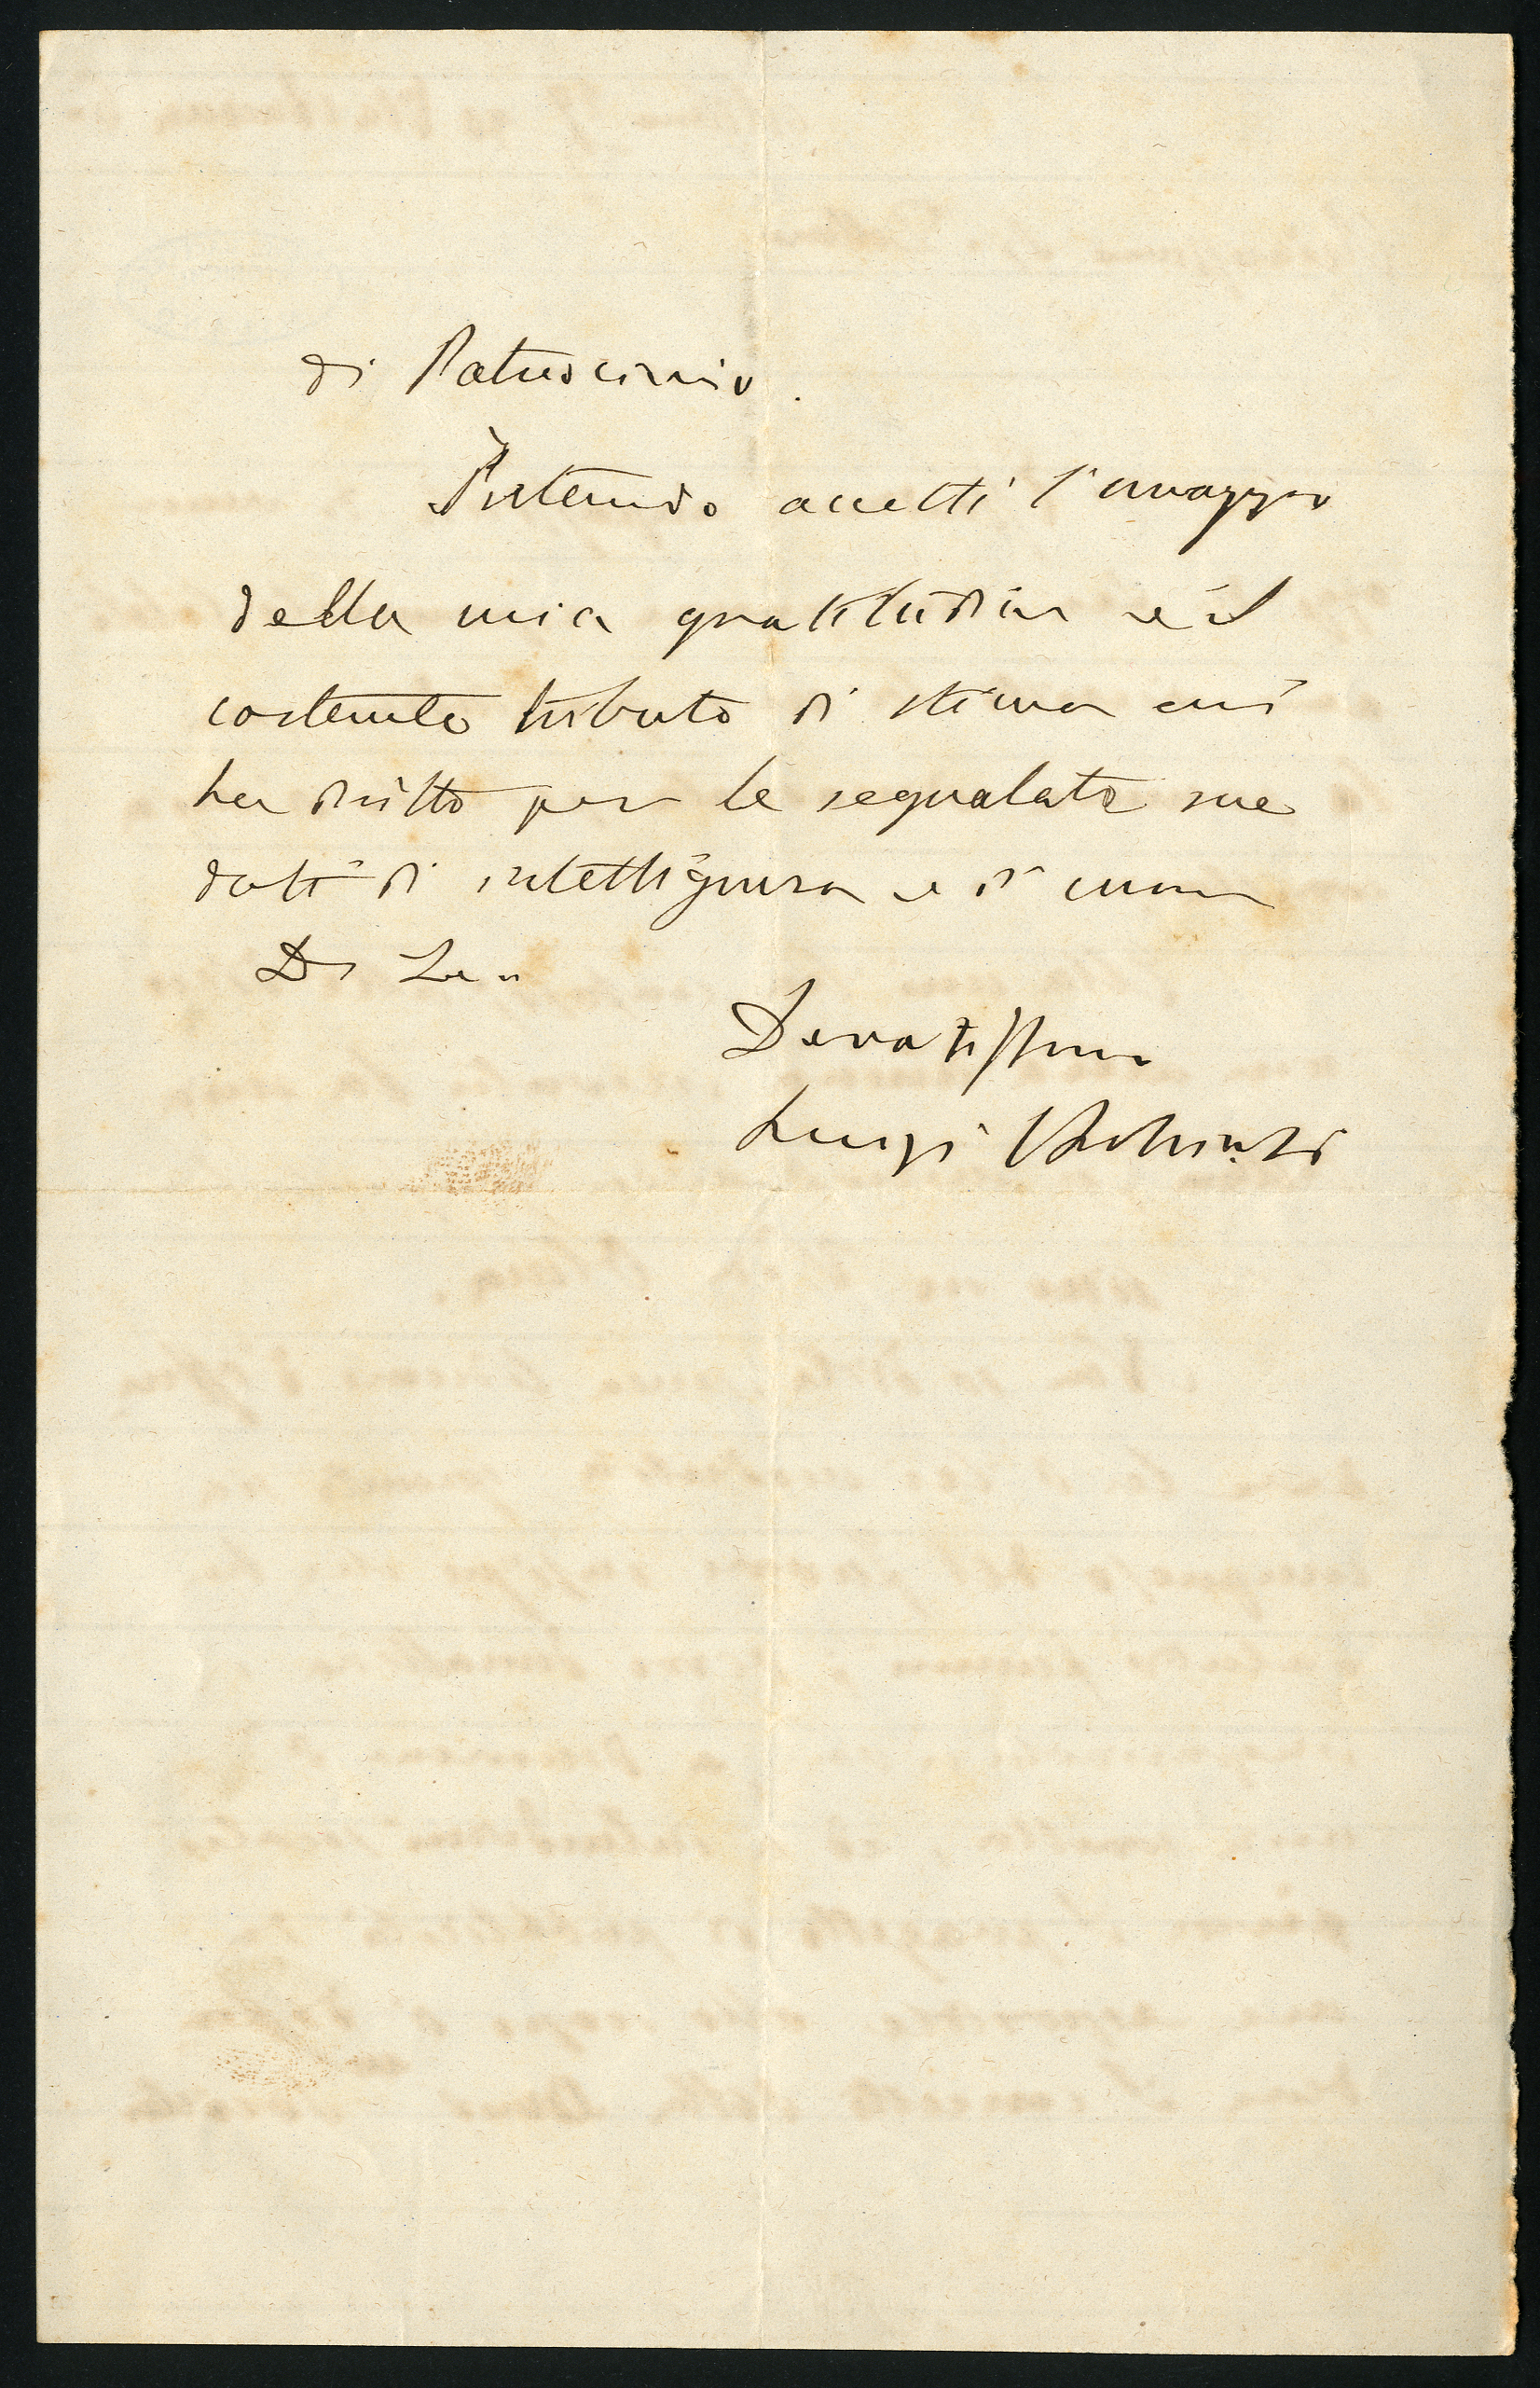 di Patrocinio.
Intendo accetti l'omaggio
della mia gratitudine e il
costante tributo di stima cui
ha dritto per le segnalate sue
doti di intelligenza e di cuore
Di Lei
Devotissimo
Luigi